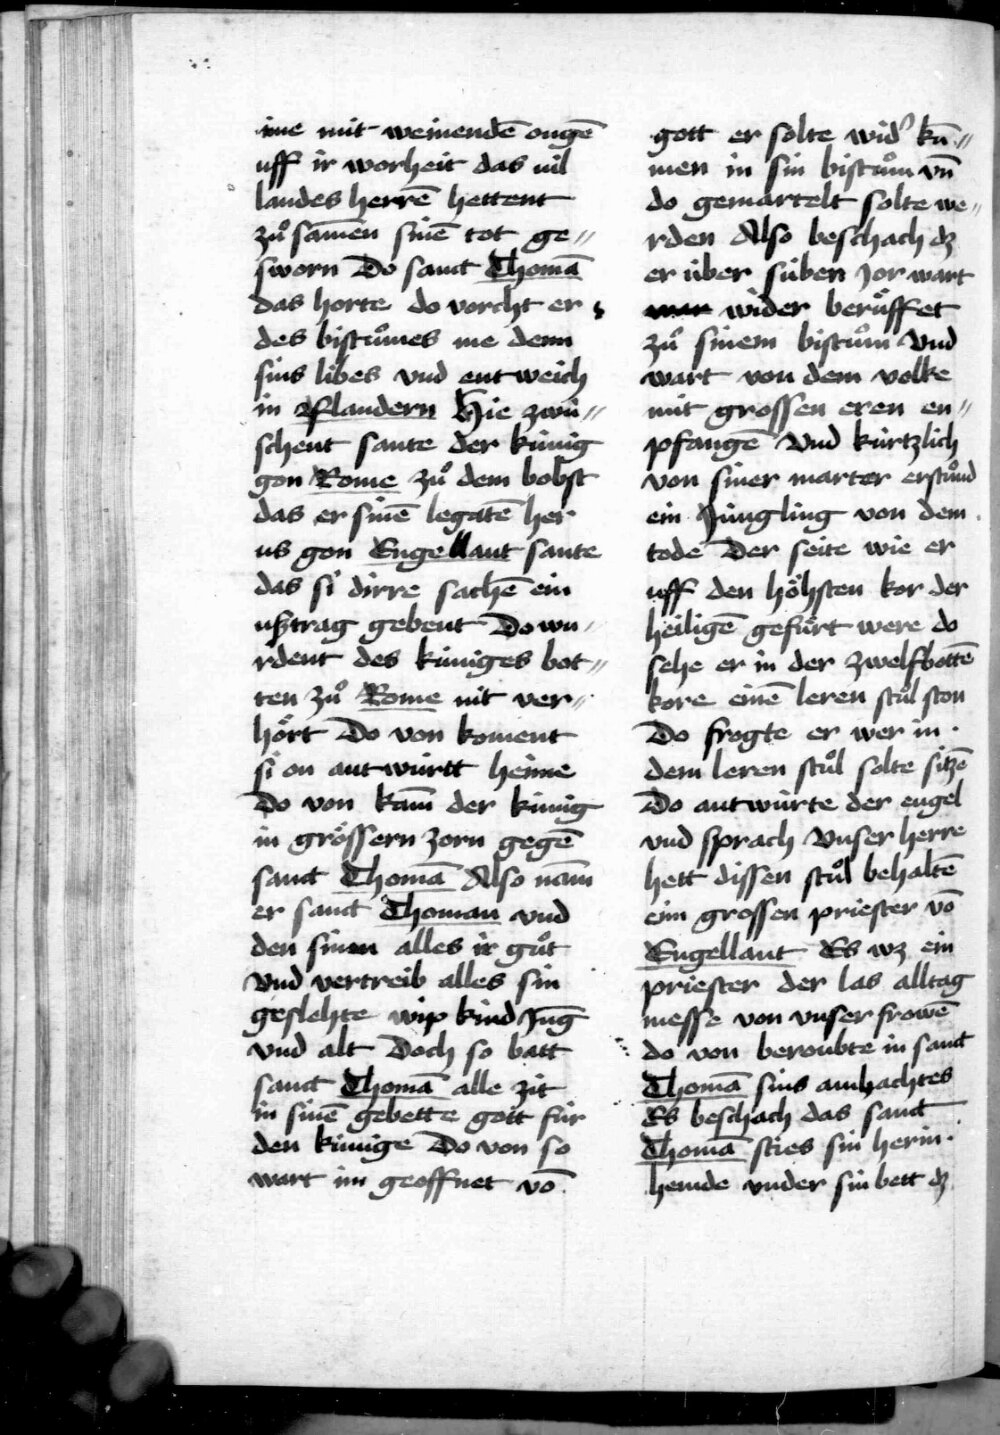 ime mit weinendē ougē
uff ir worheit das uil
landes herrē hettent
zuͦ samen sinē tot ge〃
sworn Do sanct Thomā
das horte do vorcht er
des bistuͦmes me denn
sins libes vnd entweich
in Flandern Hie zwü〃
schent sante der künig
gon Rome zuͦ dem bobst
das er sinē legatē her
us gon Engellant sante
das si dirre sachē ein
usztrag gebent Do wu〃
rdent des küniges bot〃
ten zuͦ Rome nit ver〃
hoͤrt Do von koment
si on antwürtt heime
Do von kam̄ der künig
in groͤssern zorn gegē
sanct Thomā Also nam̄
er sanct Thoman vnd
den sinen alles ir guͦt
Vnd vertreib alles sin
geslehte wip kind Jūg
vnd alt Doch so batt
sanct Thomā alle zit
in sinē gebette gott für
den künige Do von so
wart im geoffnet vō
gott er solte widʼ kū〃
men in sin bistuͦm vn̄
do gemartelt solte we〃
rden Also beschach dz
er über süben Jor wart
wider beruͤffet
zuͦ sinem bistuͦm Vnd
wart von dem volke
mit grossen eren en〃
pfangē Vnd kürtzlich
von siner marter erstuͦnd
ein Jüngling von dem
tode Der seite wie er
uff den hoͤhsten kor der
heiligē gefuͤrt were do
sehe er in der zwelfbottē
kore einē leren stuͦl ston
Do frogte er wer in
dem leren stuͦl solte sitzē
Do antwürte der engel
vnd sprach Vnser herre
hett dissen stuͦl behaltē
eim grossen priester vō
Engellant Es wz ein
priester der las alltag
messe von vnser frowē
do von beroubte in sanct
Thomā sins ambachtes
Es beschach das sanct
Thomā sties sin herin
hemde vnder sin bett dz